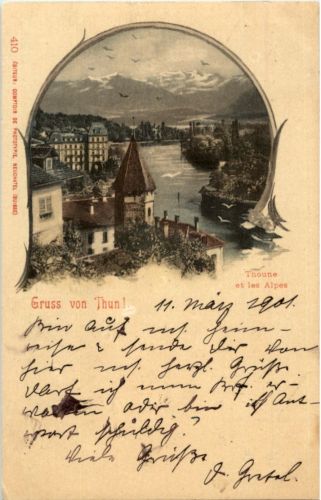 410 EDITEUR: COMPTOIR DE PHOTOTYPIE, NEUCHATEL (SUISSE)
Thoune
et les Alpes
Gruss von Thun!
11. März 1901.
Bin auf
reise & sende dir von
hier noch herzl. Grüße.
Darf ich nun er-
warten oder bin ich Ant-
wort schuldig?
Viele Grüße